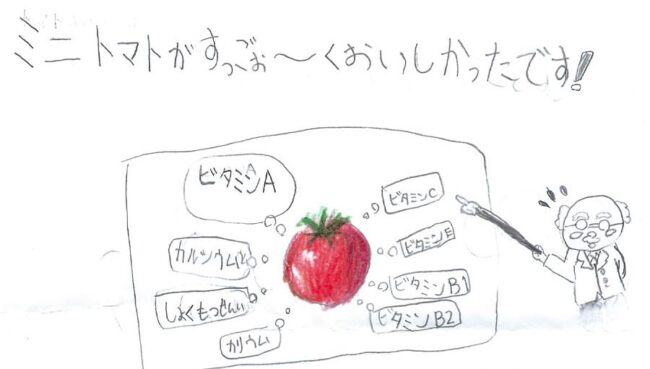 ミニトマトがすっごお〜くおいしかったです!
ビタミンA
カルシウム
しょくもつせんい
カリウム
ビタミンC
ビタミンE
ビタミンB1
ビタミンB2